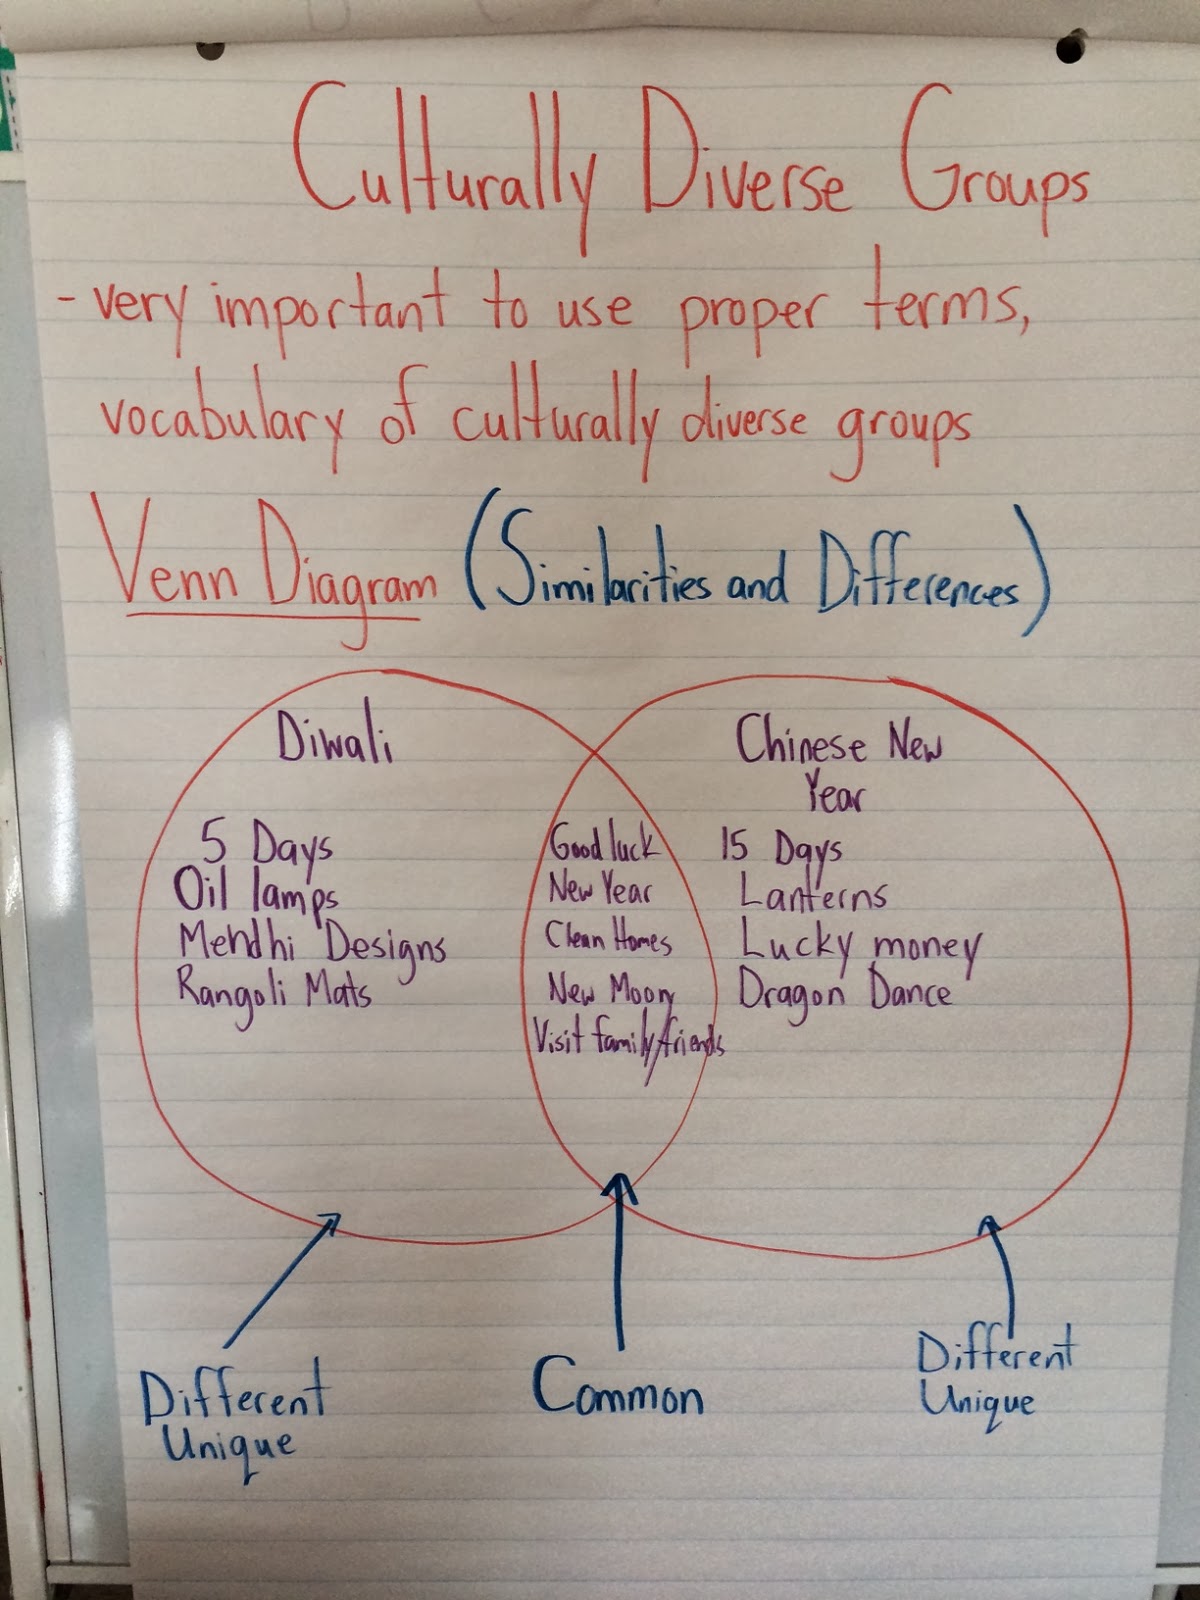 Culturally Diverse Groups
- very important to use proper terms,
vocabulary of culturally diverse groups
Venn Diagram (Similarities and Differences)
Diwali
5 Days
Oil lamps
Mehdhi Designs
Rangoli Mats
Good luck
New Year
Clean Homes
New Moon
Visit family/friends
Chinese New
Year
15 Days
Lanterns
Lucky money
Dragon Dance
Different
Unique
Common
Different
Unique